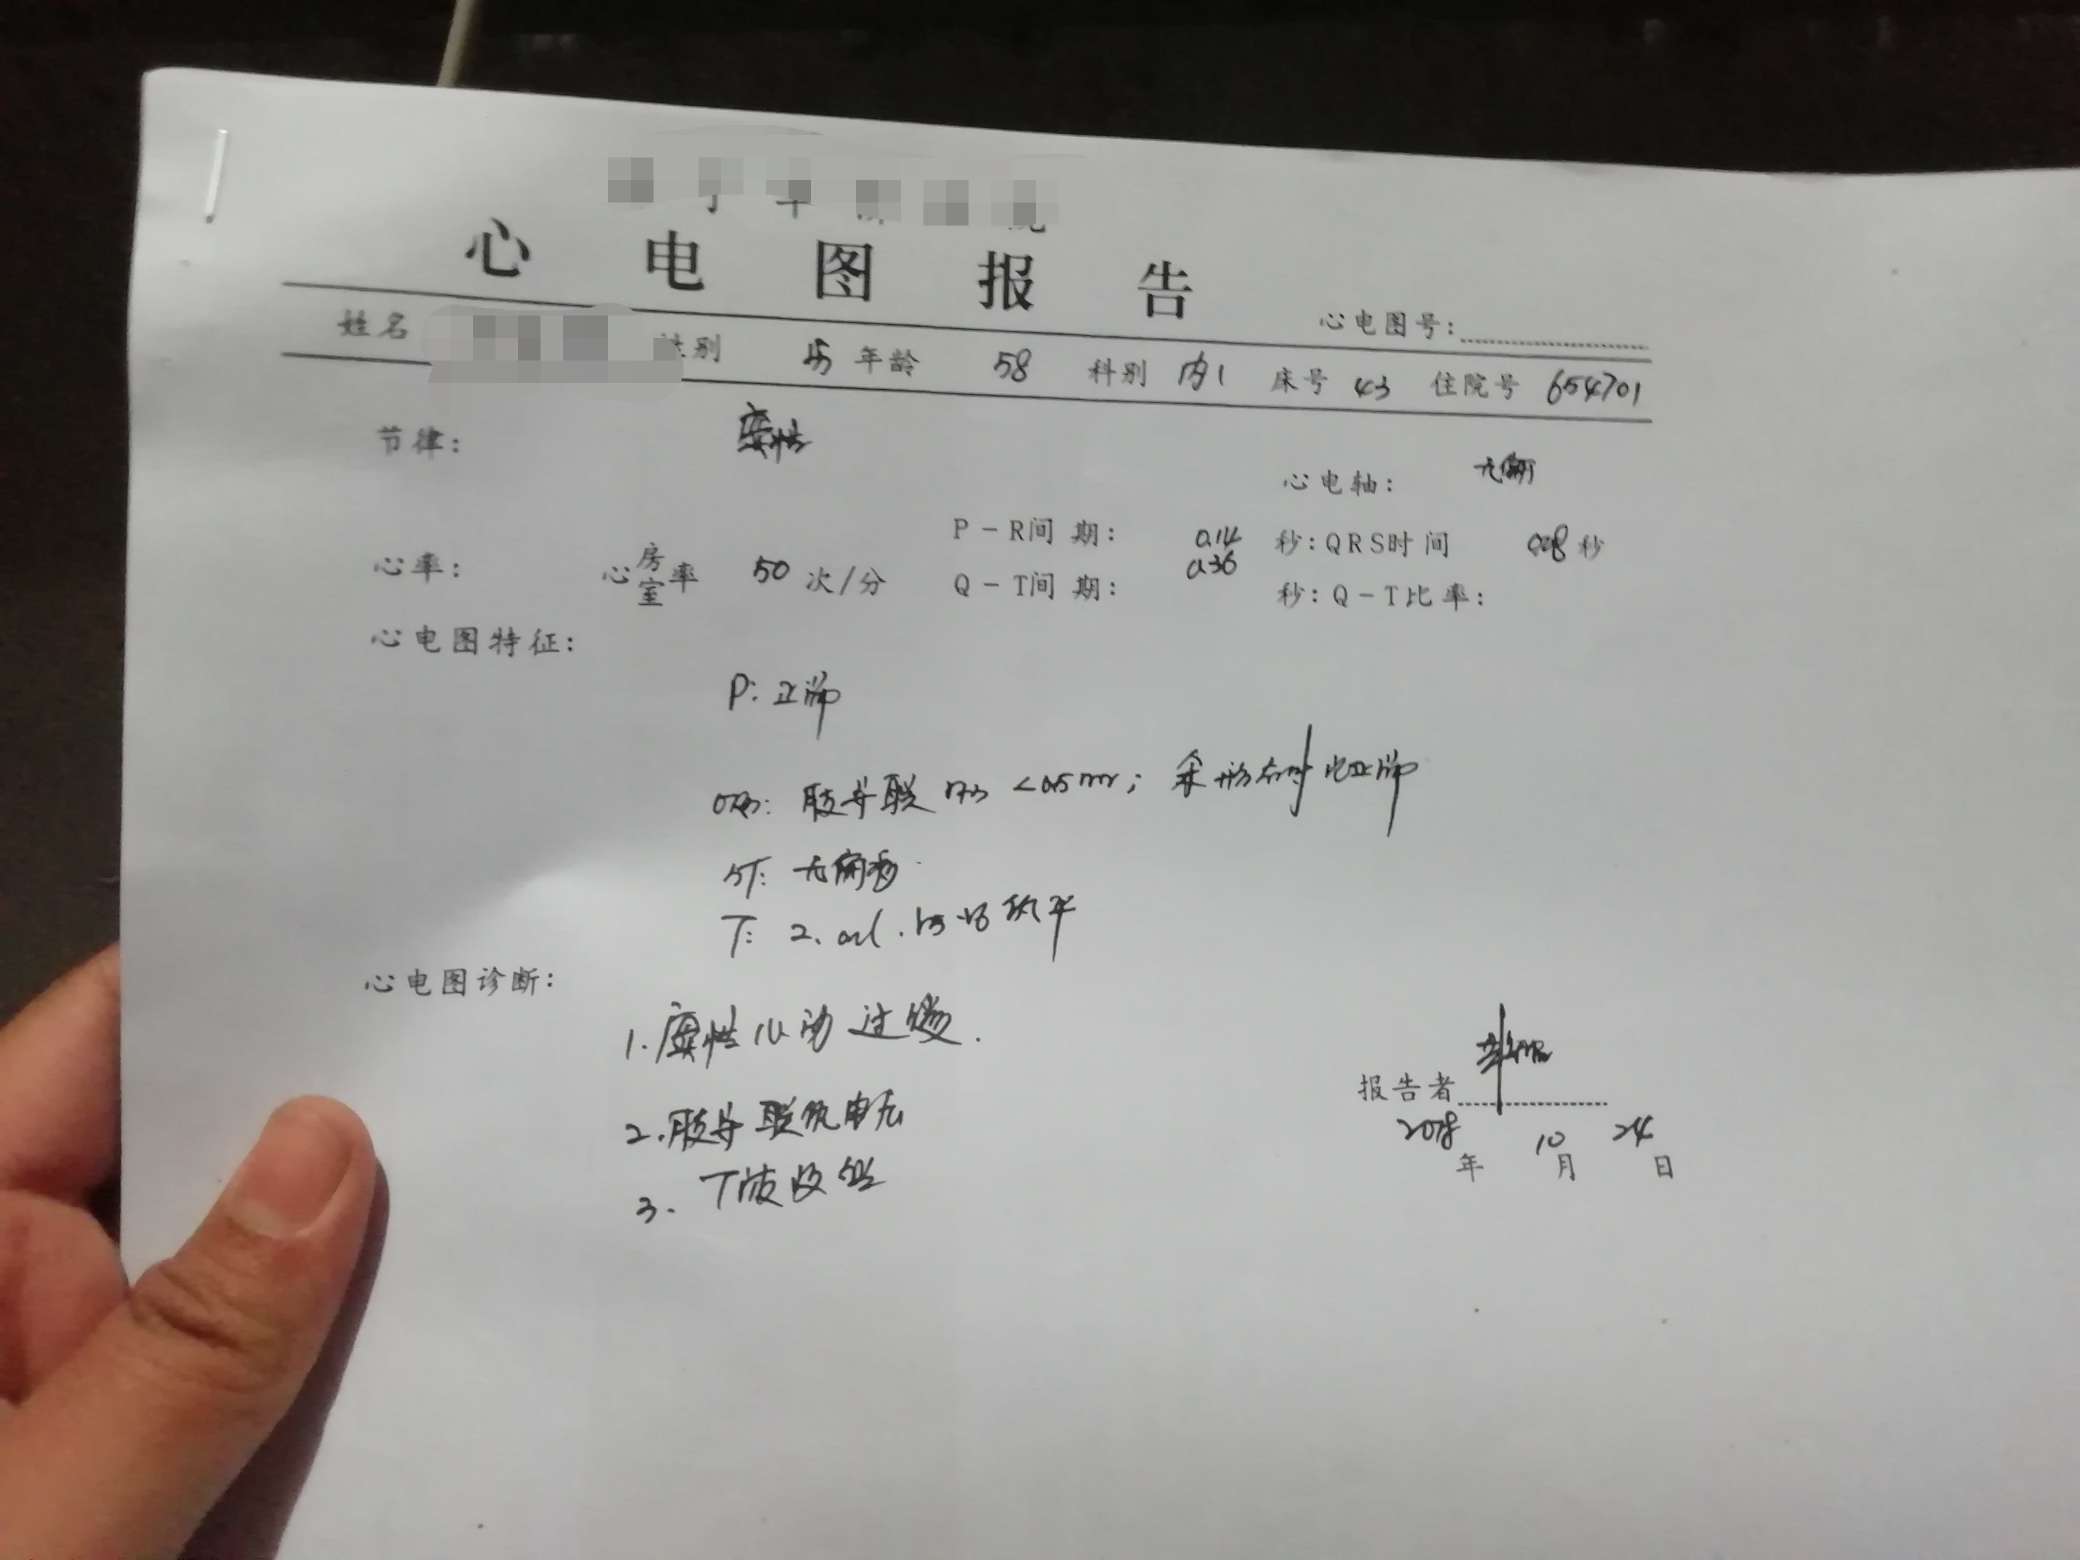 心电图报告
心电图号:
姓名 性别 年龄 58 科别 内1 床号 43 住院号 654701
节律: 窦性 心电轴: 无偏
心率: 心房室率 50 次/分 P-R间期: 0.14 秒: QRS时间 0.08 秒
Q-T间期: 0.36 秒: Q-T比率:
心电图特征:
P: 正常
QRS: 肢导联 <0.5mv; 余形态时电正常
ST: 无偏移
T: 2. avl. 低平
心电图诊断:
1. 窦性心动过缓.
2. 肢导联低电压
3. T波改变
报告者
2018年 10月 24日